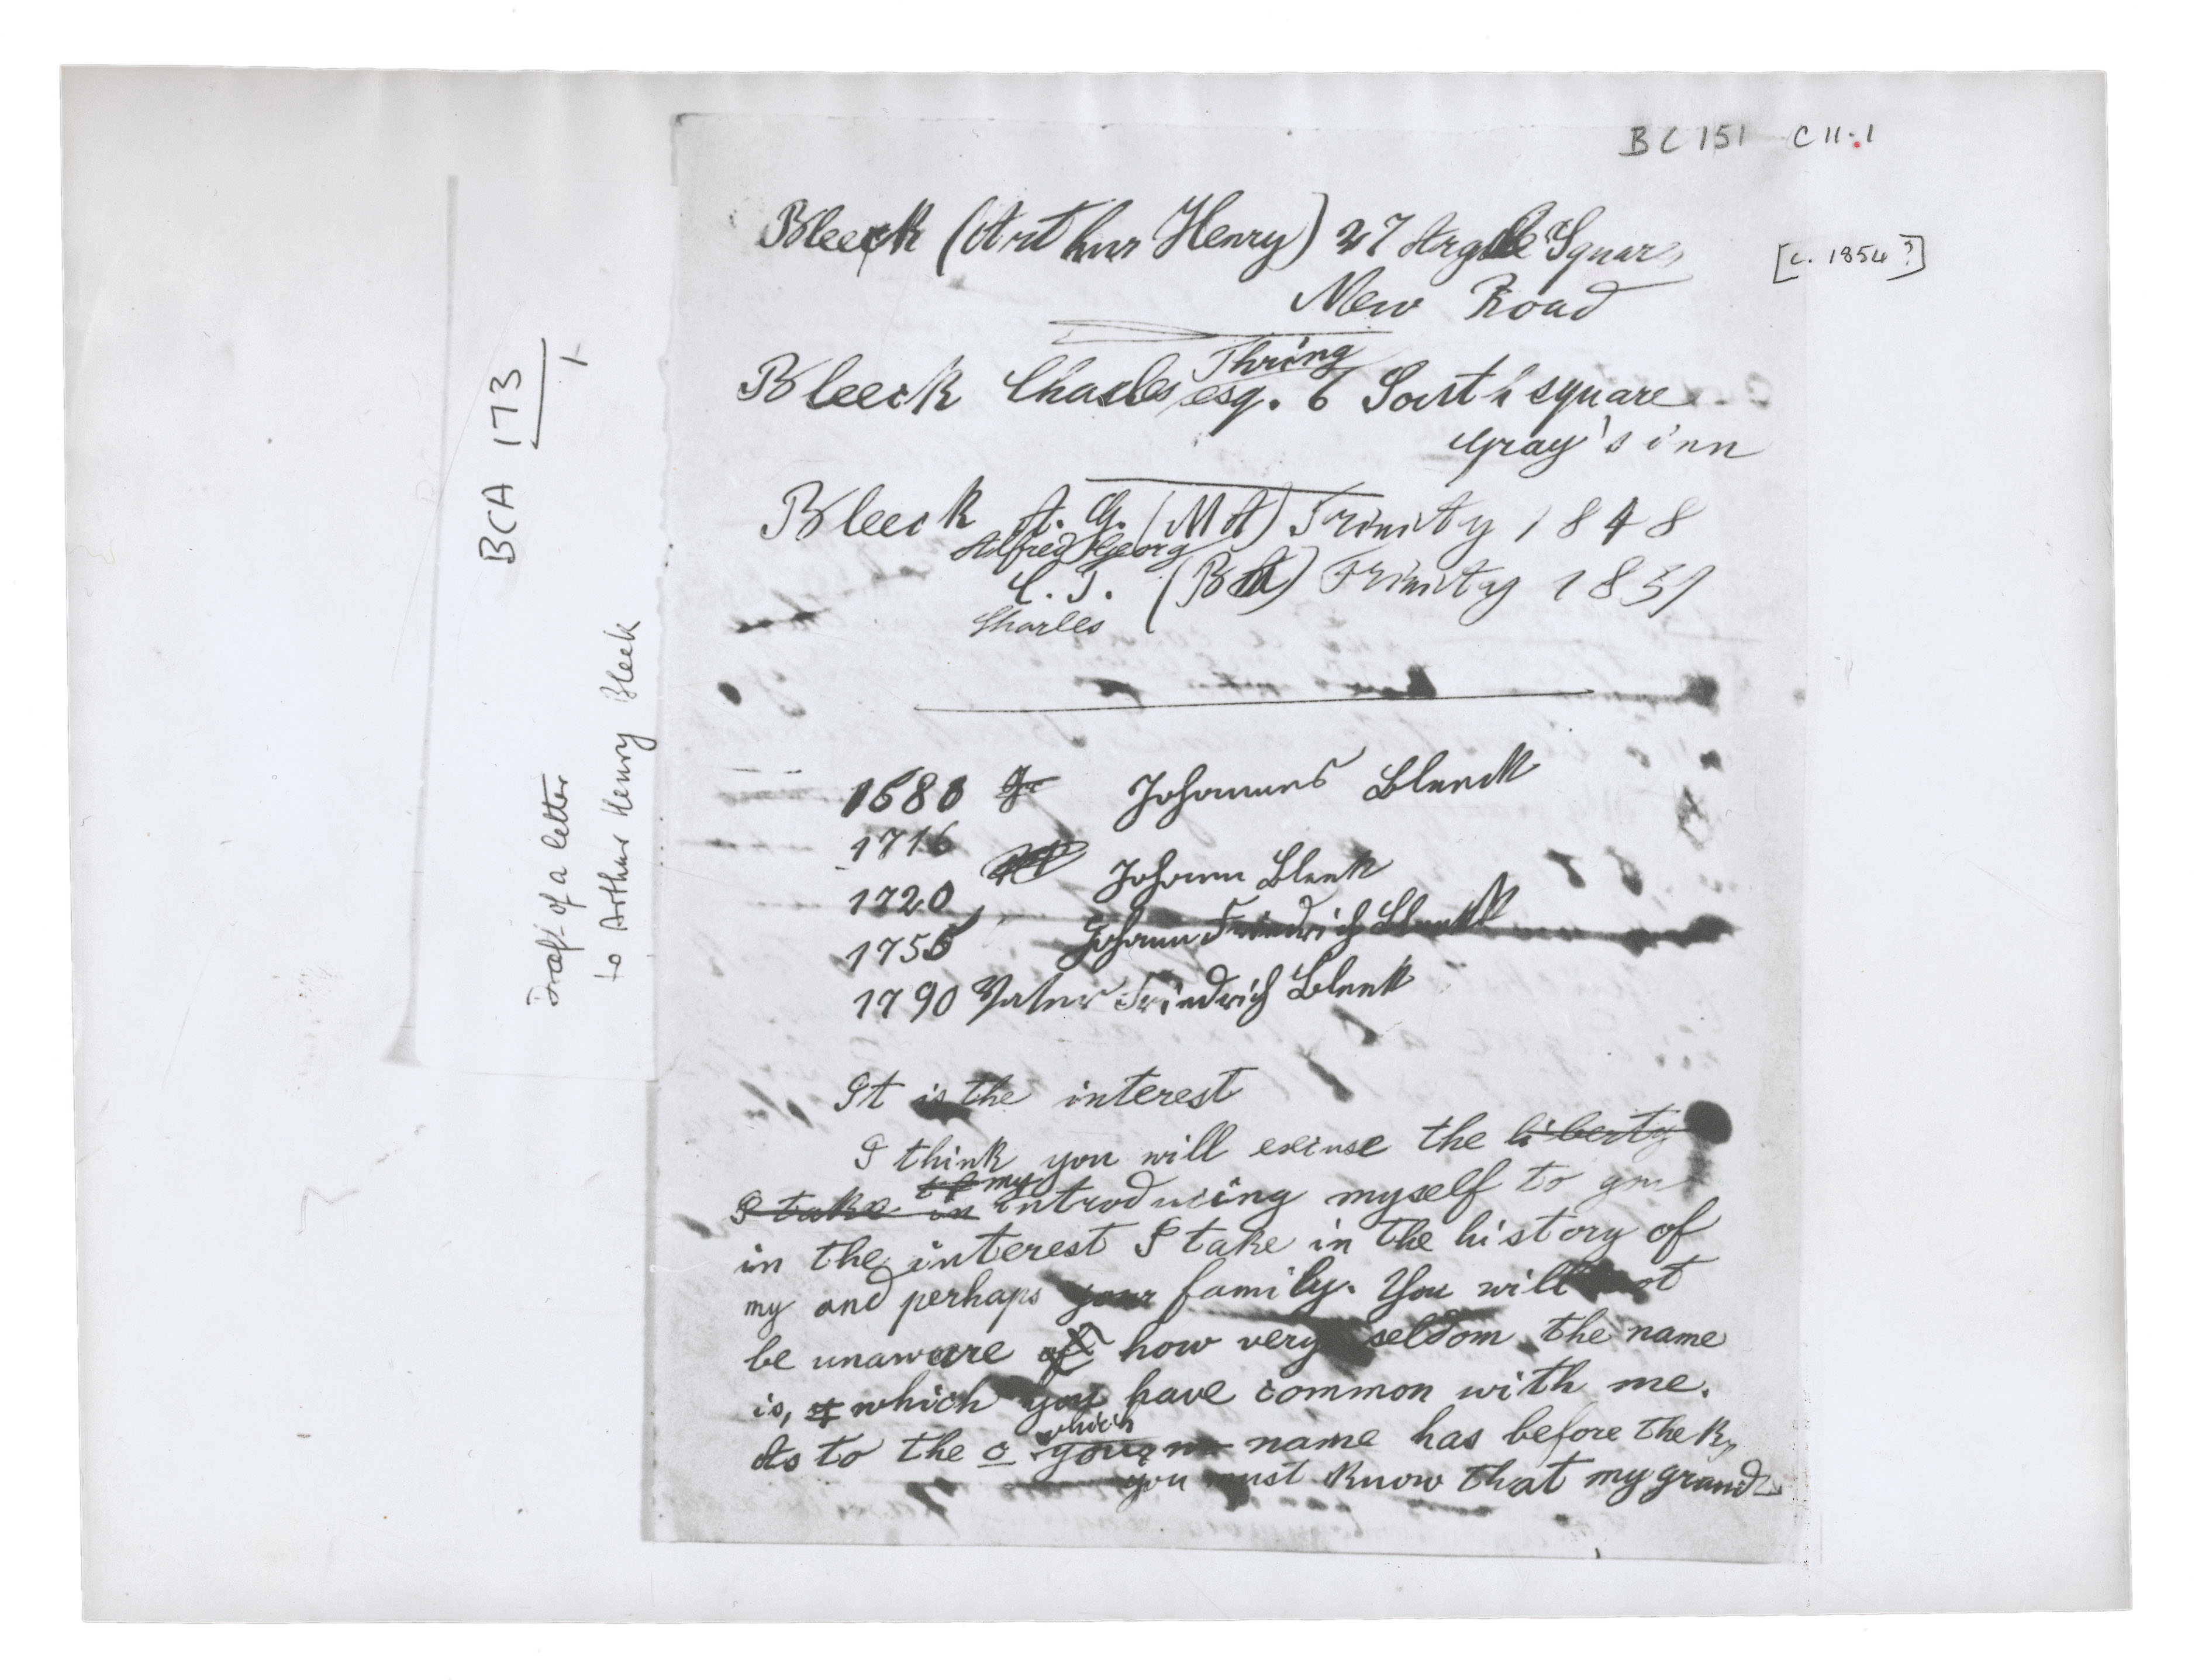 BC 151 C 11.1
[c. 1854?]
BCA 173
1
Draft of a letter
to Arthur Henry Bleek
Bleeck (Arthur Henry) 27 Argyle Square
New Road
Thring
Bleeck Charles esq. 6 South square
Gray's inn
Bleeck A. G. (MA) Trinity 1848
Alfred Georg
C. T. (BA) Trinity 1851
Charles
1680 Johannes Bleeck
1716
1720 Johann Bleek
1755 Johann Friedrich Bleek
1790 Vater Friedrich Bleek
It is the interest
I think you will excuse the liberty
of my
I take in introducing myself to you
in the interest I take in the history of
my and perhaps your family. You will not
be unaware of how very seldom the name
is, of which you have common with me.
which
As to the o your name has before the k,
you must know that my grand